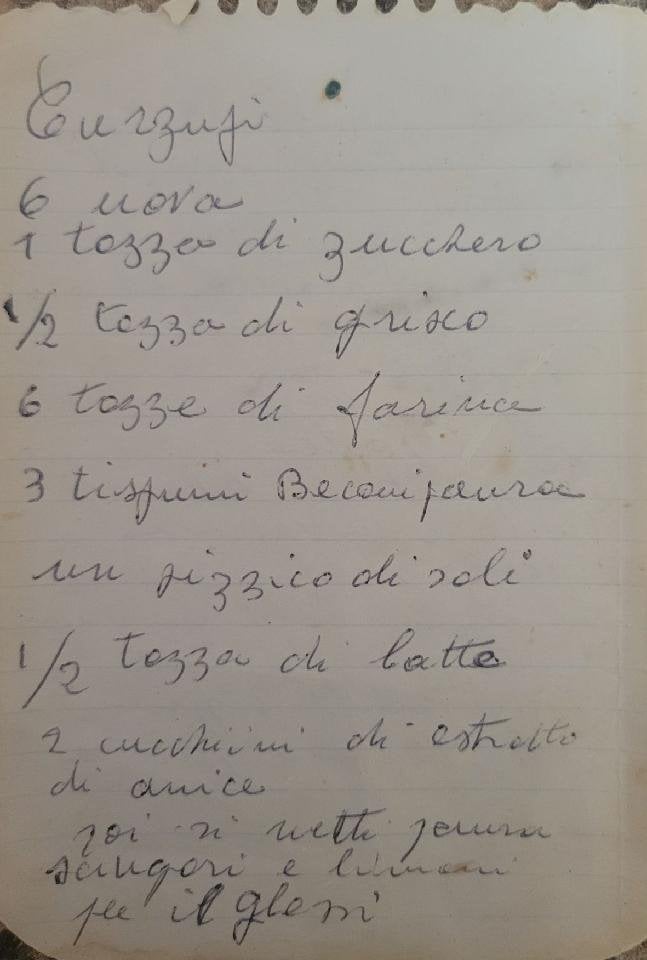 Curzufi
6 uova
1 tazza di zucchero
1/2 tazza di grisco
6 tazze di farina
3 tispuni Becanipaura
un pizzico di sali
1/2 tazza di latte
2 cucchiini di estratto
di anice
poi si metti paura
sangori e limoni
pee il glassi